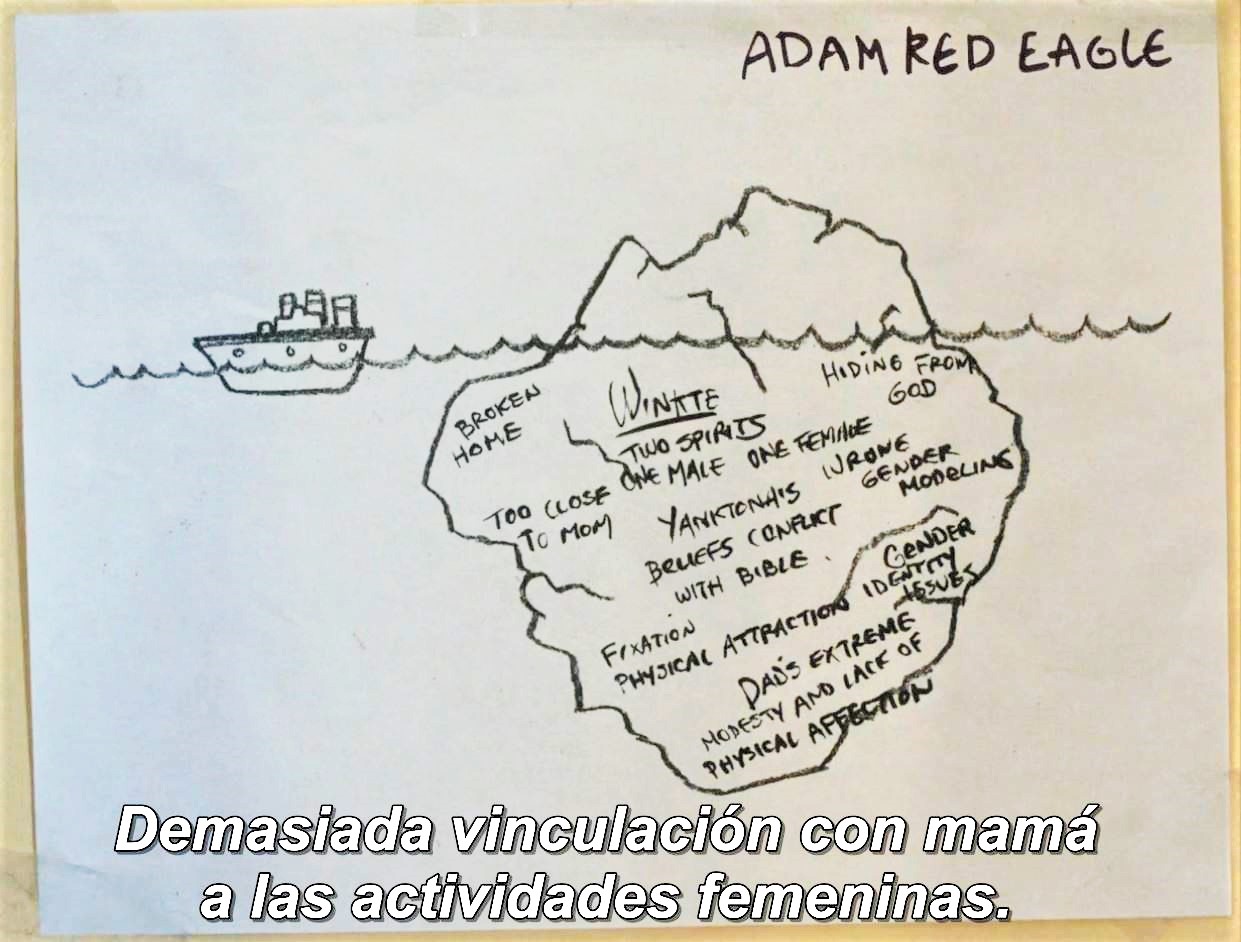 ADAM RED EAGLE
BROKEN
HOME
WINKTE
TWO SPIRITS
ONE MALE ONE FEMALE
HIDING FROM
GOD
TOO CLOSE
TO MOM
YANKTONAIS
BELIEFS CONFLICT
WITH BIBLE.
WRONG
GENDER
MODELING
GENDER
IDENTITY
ISSUES
FIXATION
PHYSICAL ATTRACTION
DAD'S EXTREME
MODESTY AND LACK OF
PHYSICAL AFFECTION
Demasiada vinculación con mamá
a las actividades femeninas.